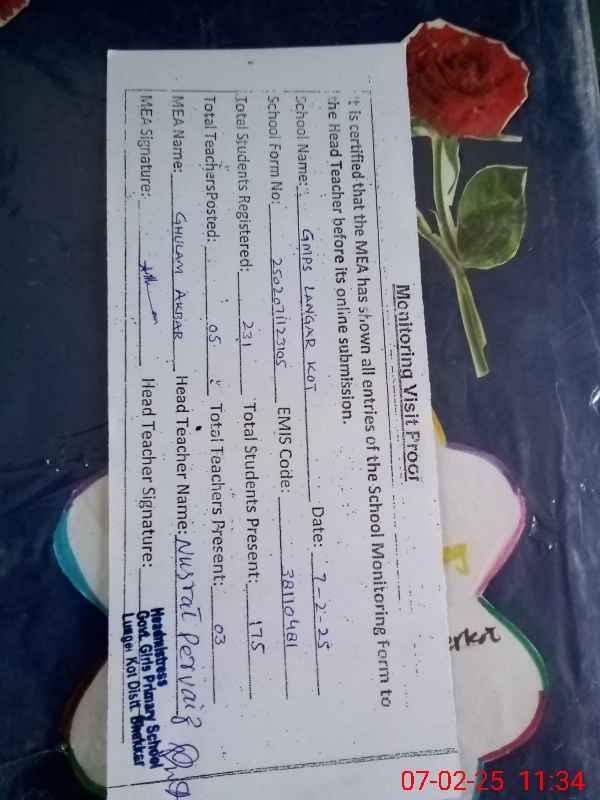 Monitoring Visit Proof
It is certified that the MEA has shown all entries of the School Monitoring Form to
the Head Teacher before its online submission.
School Name: GMPS LANGAR KOT Date: 7-2-25
School Form No: EMIS Code: 38110481
Total Students Registered: 231 Total Students Present: 175
Total TeachersPosted: 05 Total Teachers Present: 03
MEA Name: GHULAM AKBAR Head Teacher Name: Nusrat Pervaiz
MEA Signature: Head Teacher Signature:
Headmistress
Govt. Girls Primary School
Kot Distt. Bhakkar
erkot
07-02-25 11:34